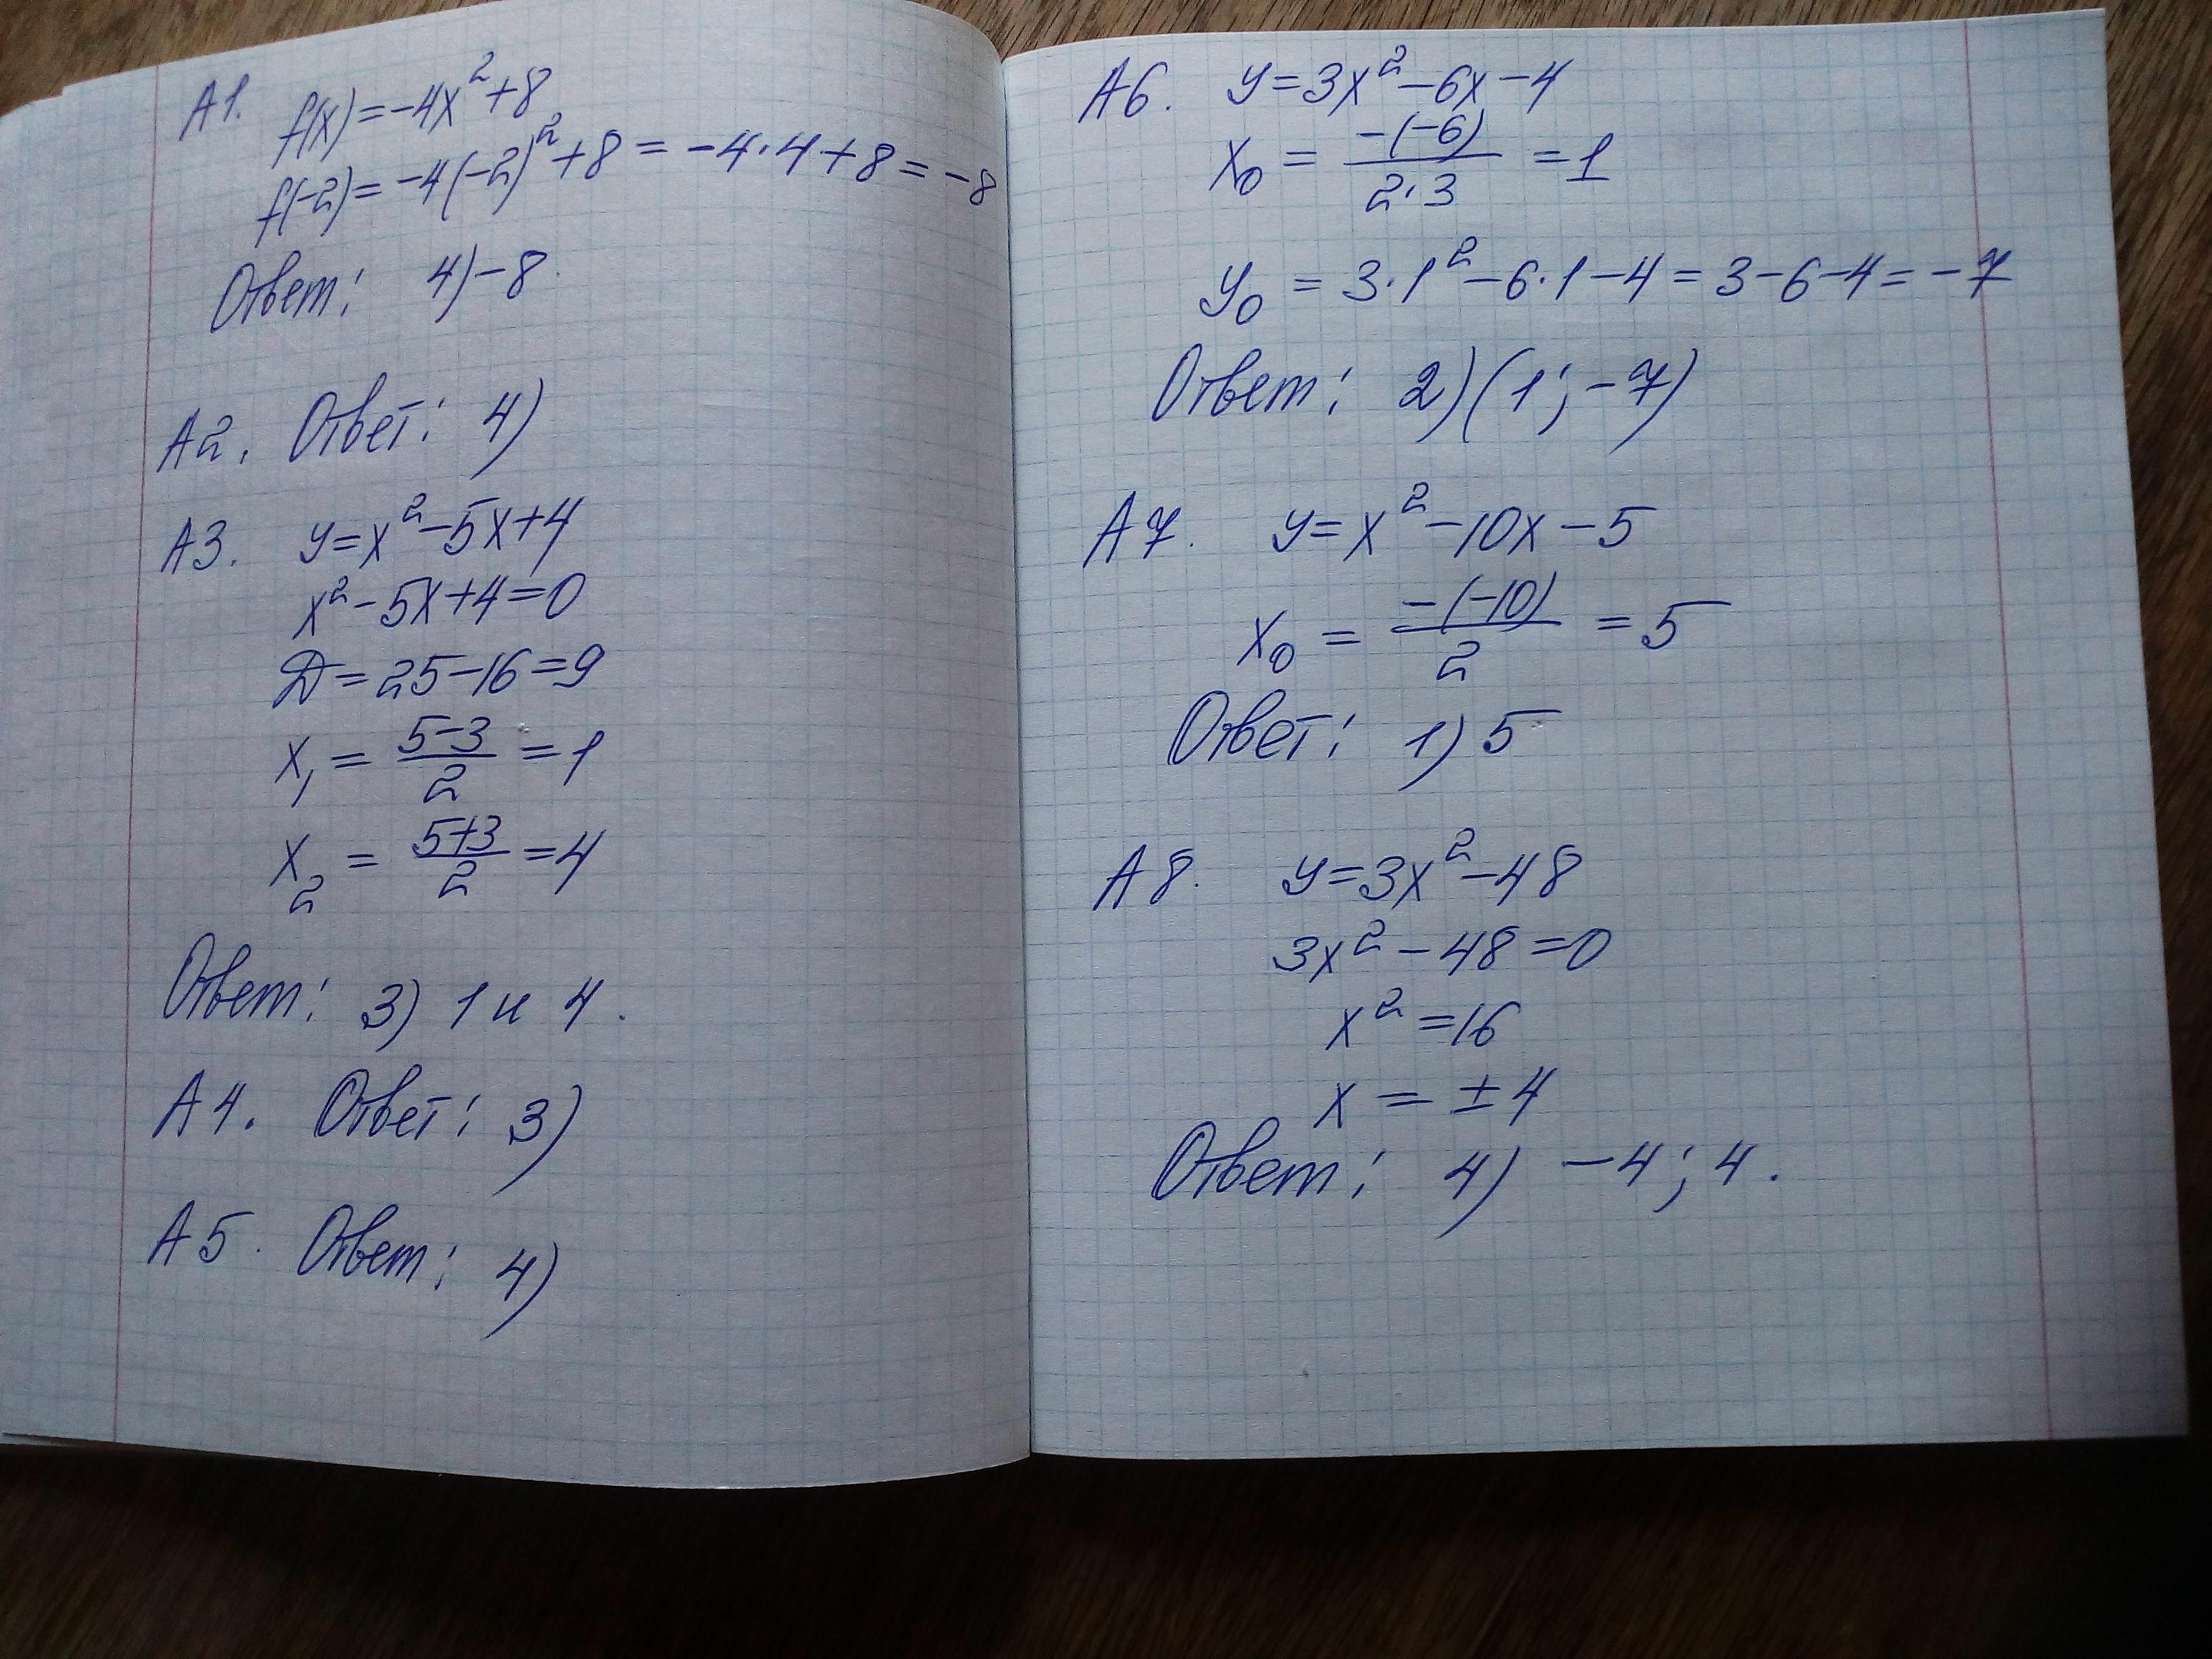 А1. f(x)=-4x²+8
f(-2)=-4(-2)²+8=-4·4+8=-8
Ответ: 4)-8.
А2. Ответ: 4)
А3. y=x²-5x+4
x²-5x+4=0
Д=25-16=9
x₁ = (5-3)/2 = 1
x₂ = (5+3)/2 = 4
Ответ: 3) 1 и 4.
А4. Ответ: 3)
А5. Ответ: 4)
А6. y=3x²-6x-4
x₀ = -(-6)/(2·3) = 1
y₀ = 3·1²-6·1-4=3-6-4=-7
Ответ: 2)(1;-7)
А7. y=x²-10x-5
x₀ = -(-10)/2 = 5
Ответ: 1) 5
А8. y=3x²-48
3x²-48=0
x²=16
x = ±4
Ответ: 4) -4; 4.